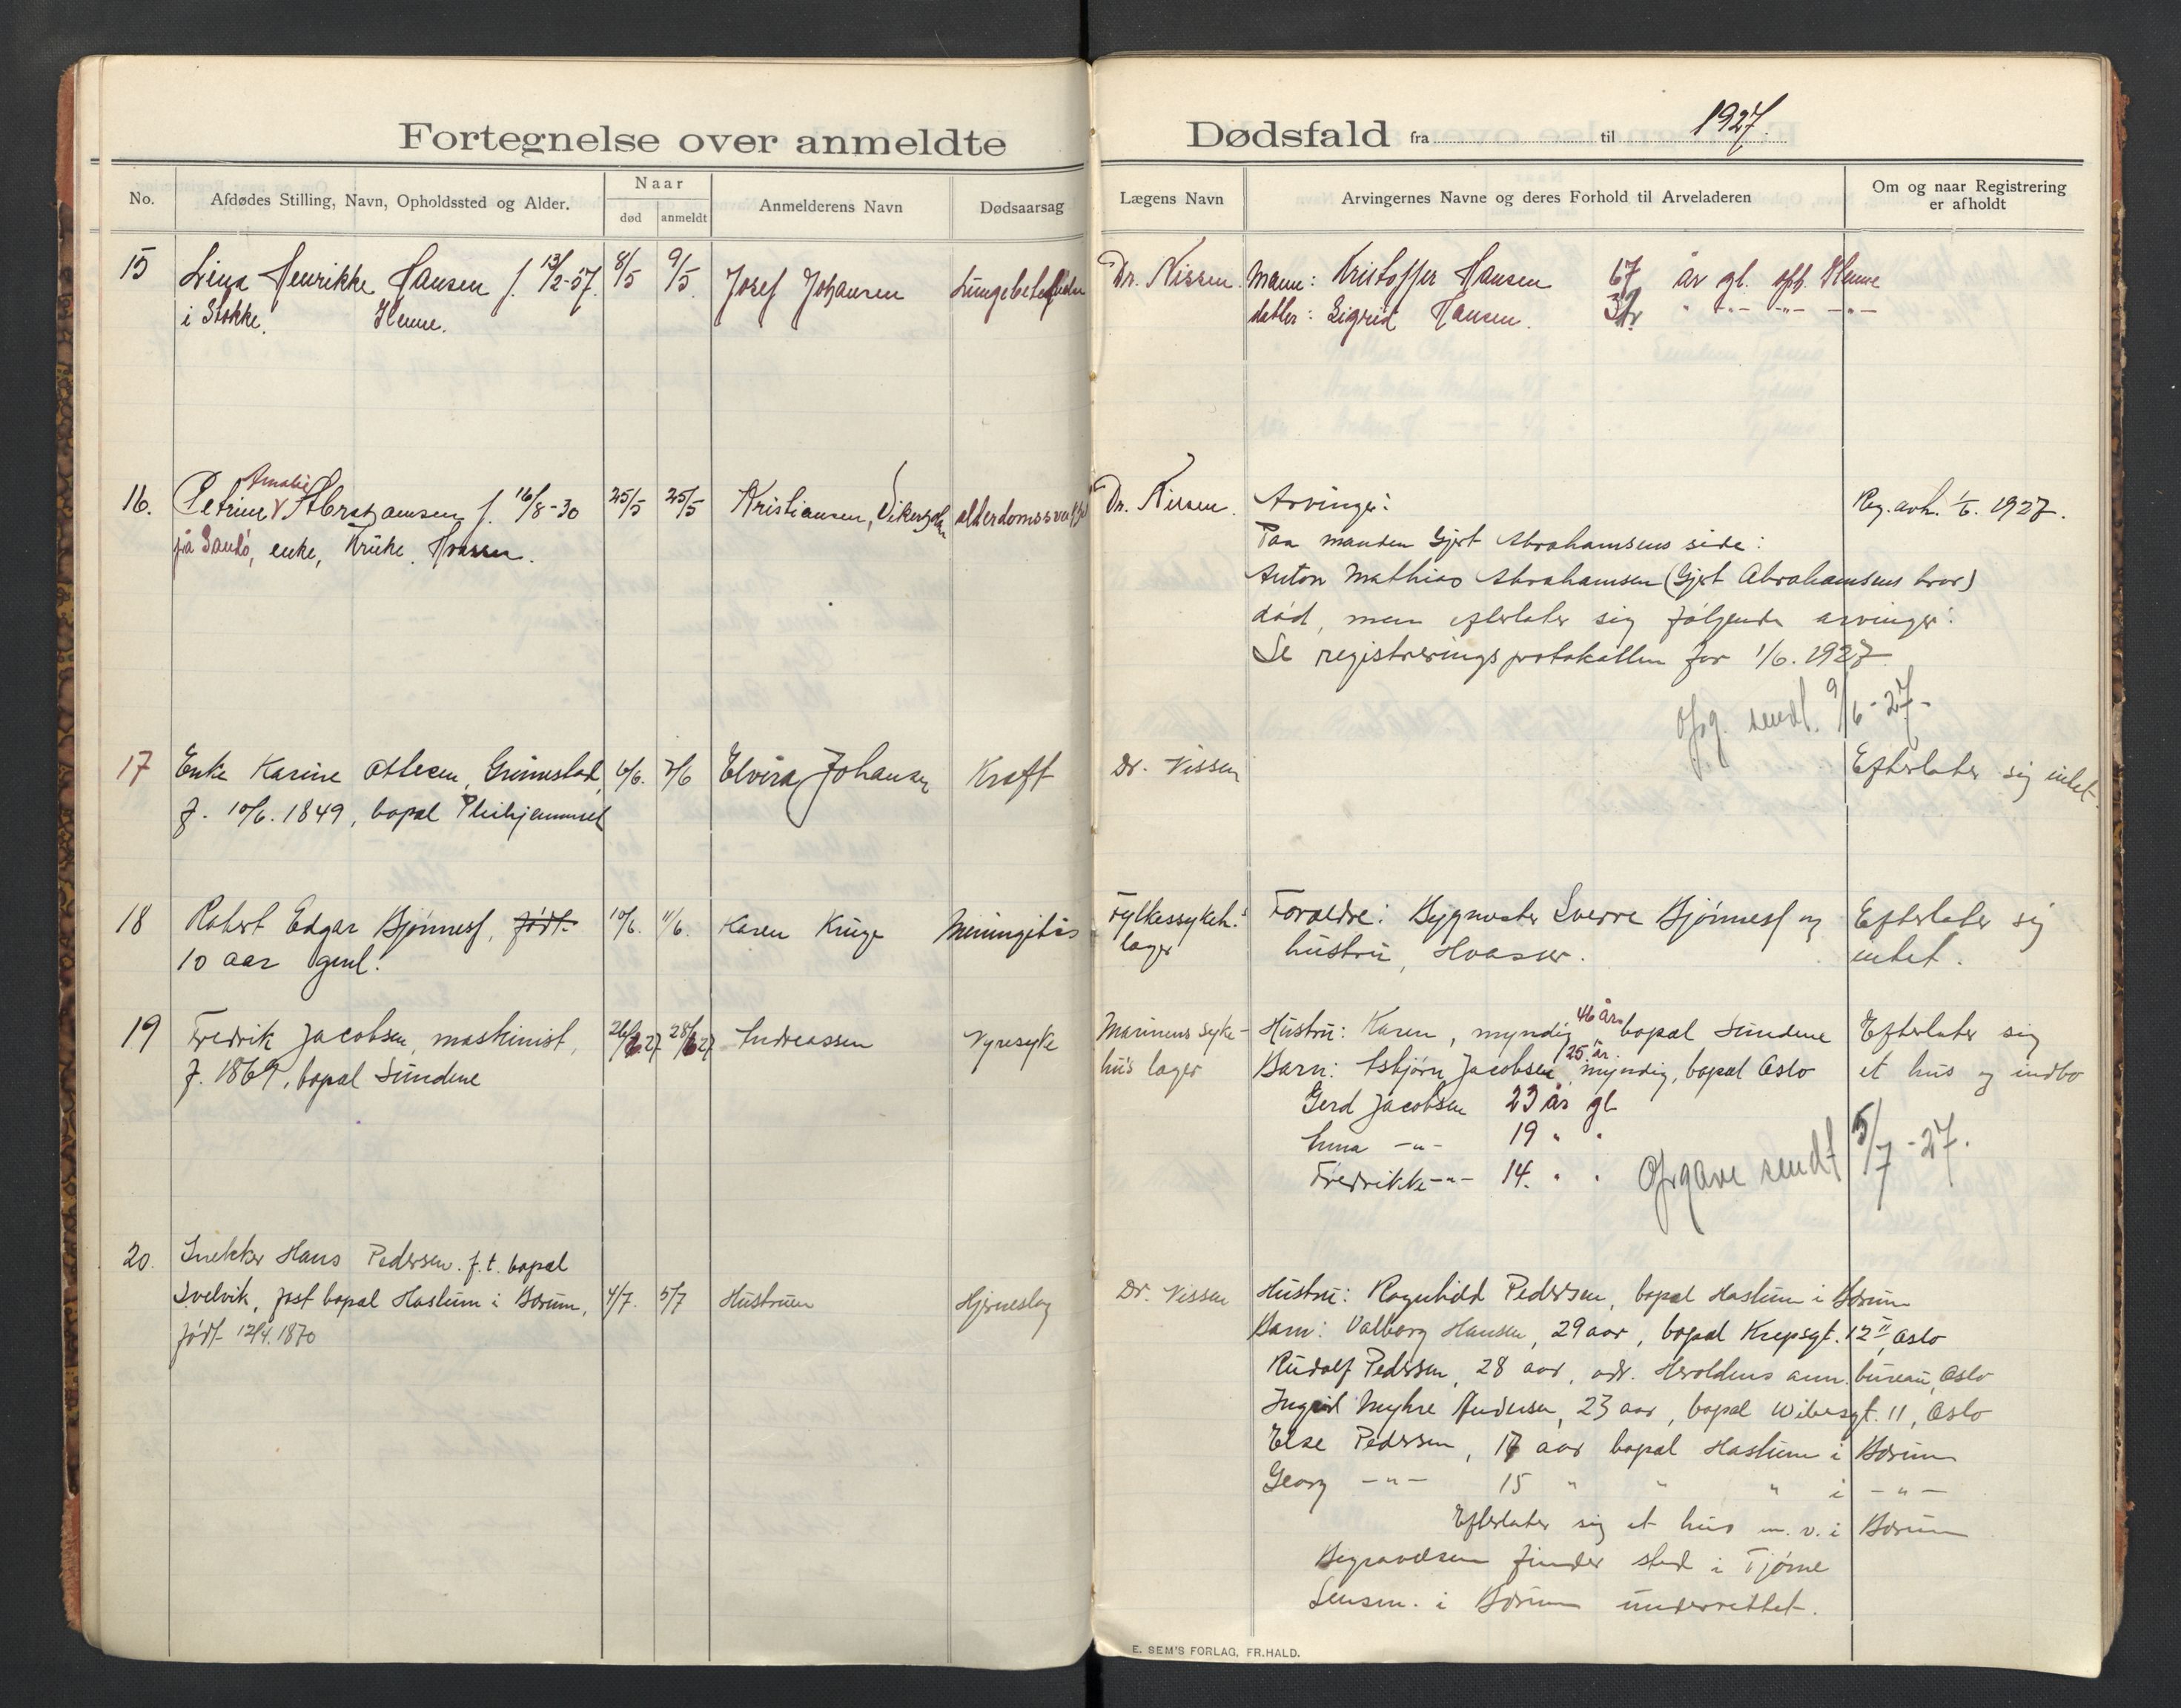 Fortegnelse over anmeldte
Dødsfald fra til 1927.
No.
Afdødes Stilling, Navn, Opholdssted og Alder.
Naar
død
anmeldt
Anmelderens Navn
Dødsaarsag
Lægens Navn
Arvingernes Navne og deres Forhold til Arveladeren
Om og naar Registrering
er afholdt
15 Lina Henrikke Hansen f. 13/2-57. 8/5 9/5 Josef Johansen Dr. Nissen. Mann: Kristoffer Hansen 67 år gl. opp. Hunne
i Stokke. datter: Sigrid Hansen. " -"- -"- -"-
16. Petrine Amalie Abrahamsen f. 16/8-30 25/5 25/5 Kristiansen, Dr. Nissen. Arvinger: Reg. avh. 1/6. 1927.
på Sandø, enke, Kruke. Hvasser. Paa manden Gjert Abrahamsens side:
Anton Mathias Abrahamsen (Gjert Abrahamsens bror)
død, men efterlater sig følgende arvinger:
Se registreringsprotokollen for 1/6. 1927
Opg. sendt. 9/6-27-
17 Enke Karine Ottesen, Grimestad, 6/6. 7/6 Elvira Johansen Kræft Dr. Nissen Efterlater sig intet.
f. 10/6. 1849, bopæl Pleihjemmet
18 Robert Edgar Bjønness, født 10/6. 11/6. Karen Kruge Meningitis Fylkessykeh.s Foreldre: Bygmester Sverre Bjønness og Efterlater sig
10 aar gml. læger hustru, Hvasser. intet.
19 Fredrik Jacobsen, maskinist, 26/6 27 28/6 27 Andreassen Nyresyke Marinens syke- Hustru: Karen, myndig 46 år bopæl Sundene Efterlater sig
f. 1869, bopæl Sundene hus læger Barn: Asbjørn Jacobsen 25 år. myndig, bopæl Oslo et hus og indbo
Gerd Jacobsen 23 år gl.
Anna -"- 19 " "
Fredrikke -"- 14. " " Opgave sendt 5/7-27.
20. Snekker Hans Pedersen. f.t. bopæl
Svelvik, fast bopæl Haslum i Bærum, 4/7. 5/7 Hustruen Hjerneslag Dr. Nissen Hustru: Ragnhild Pedersen, bopæl Haslum i Bærum
født 12/4. 1870 Barn: Valborg Hansen, 29 aar, bopæl Krepsgt. 12 II, Oslo
Rudolf Pedersen, 28 aar, adr. Heroldens ann. bureau, Oslo
Ingrid Myhre Andersen, 23 aar, bopæl Wibesgt. 11, Oslo
Else Pedersen, 17 aar bopæl Haslum i Bærum
Georg -"- 15 " " " i -"-
Efterlater sig et hus m. v. i Bærum
Begravelsen finder sted i Tjøme
Lensm. i Bærum underrettet.
E. SEM'S FORLAG, FR.HALD.